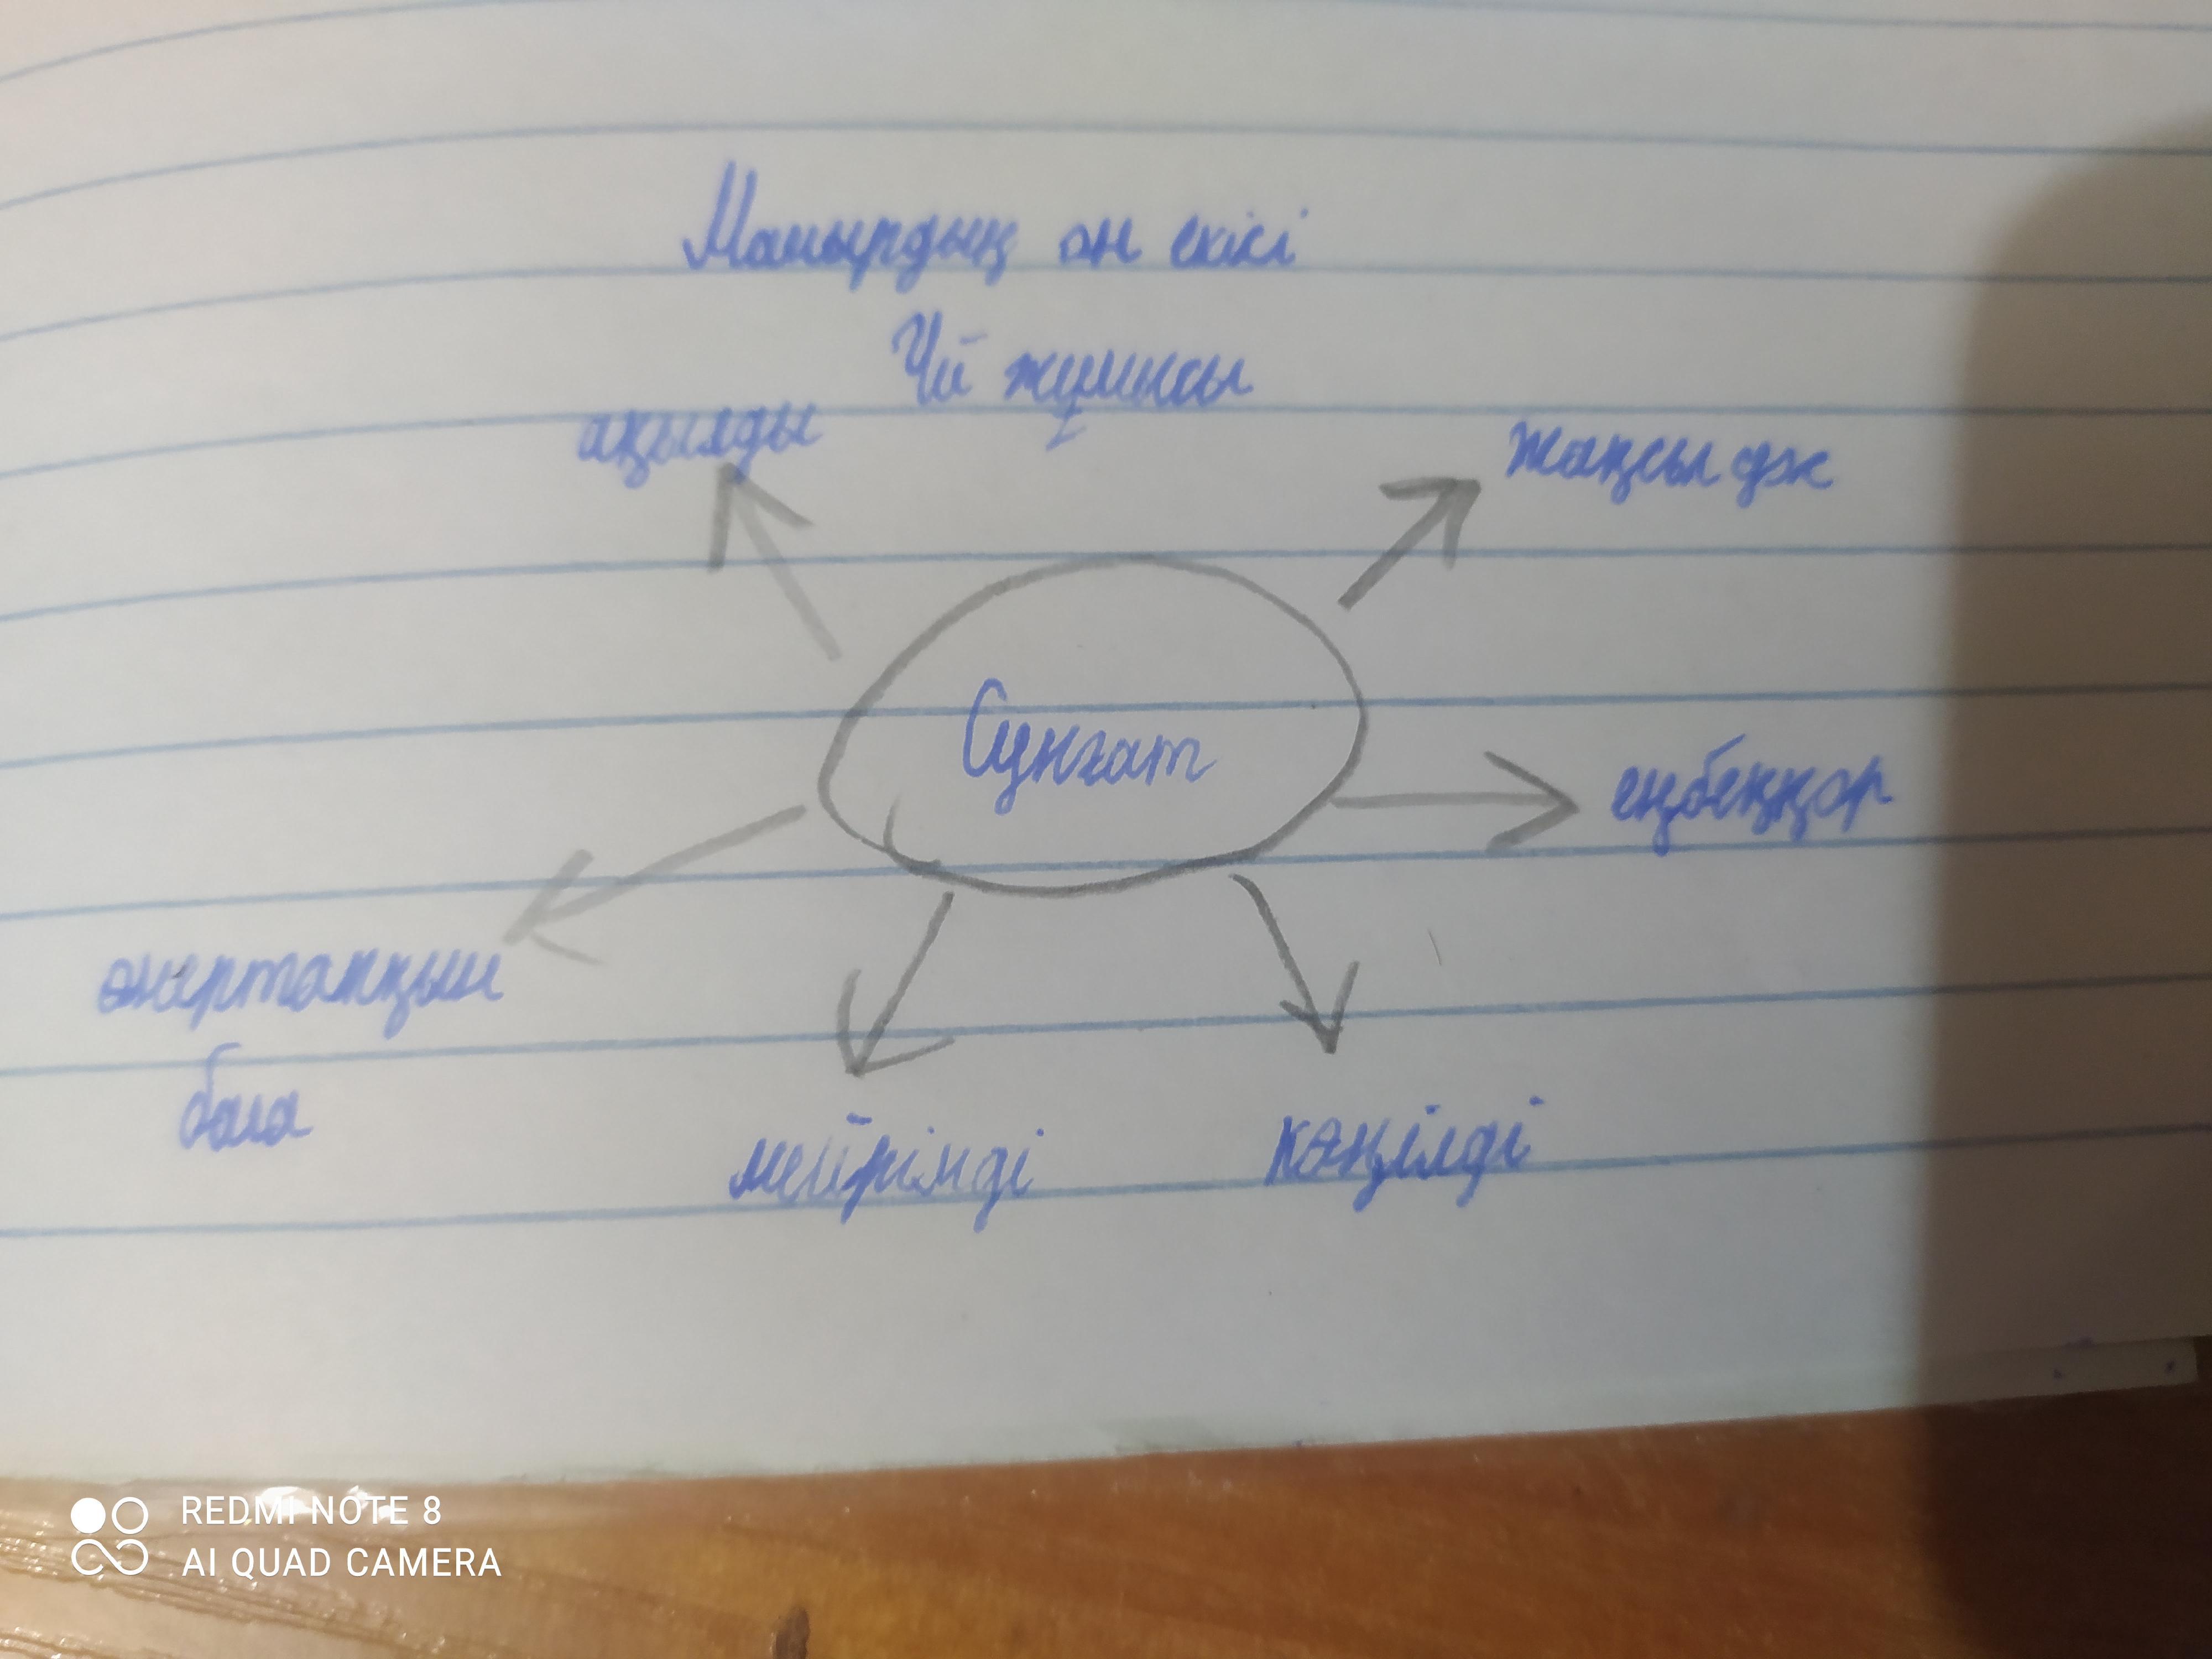 Мамырдың он екісі
Үй жұмысы
ақылды
жақсы дос
Сұнғат
еңбекқор
өнертапқыш
бала
мейірімді
көңілді
REDMI NOTE 8
AI QUAD CAMERA